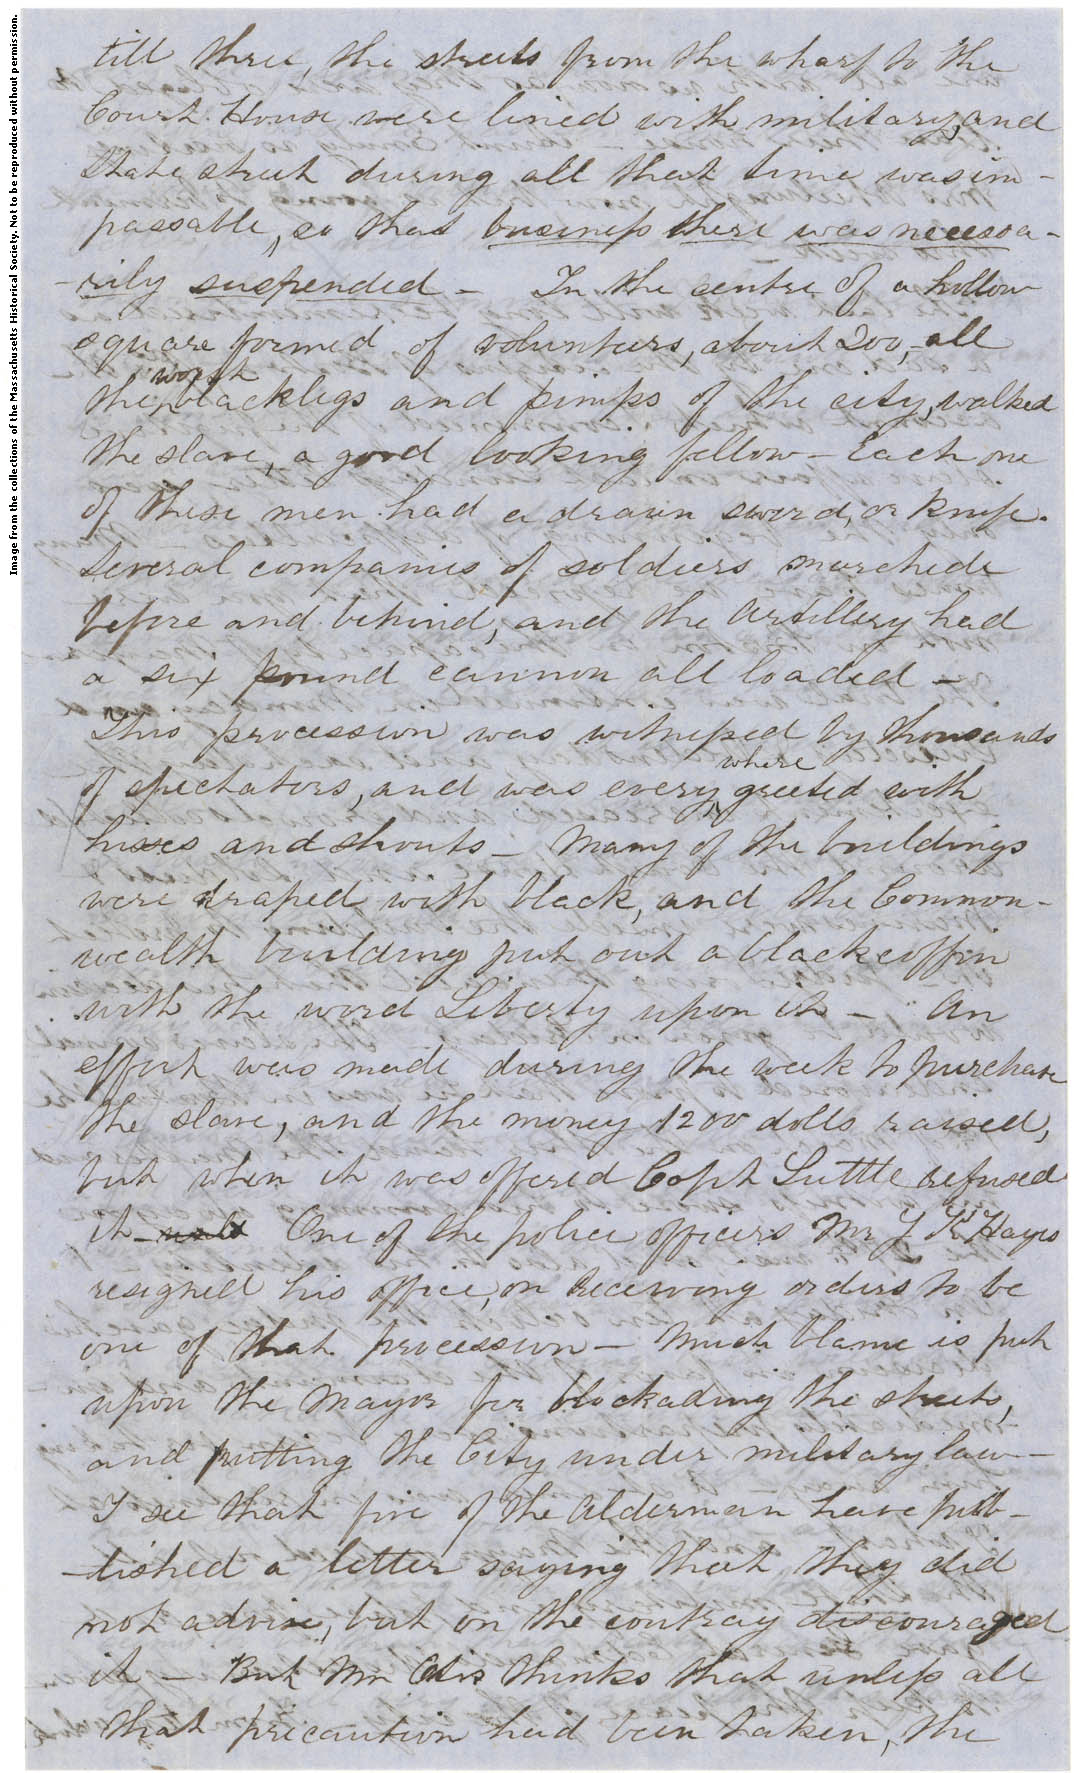 till three, the streets from the wharf to the
Court House were lined with military, and
State street during all that time was im-
passable, so that business there was necessa-
-rily suspended - In the centre of a hollow
square formed of volunteers, about 200, all
worst
the blacklegs and pimps of the city, walked
the slave, a good looking fellow - Each one
of these men had a drawn sword, or knife.
Several companies of soldiers marched
before and behind, and the Artillery had
a six pound cannon all loaded -
This procession was witnessed by thousands
where
of spectators, and was every greeted with
hisses and shouts - Many of the buildings
were draped with black, and the Common-
wealth building put out a black coffin
with the word Liberty upon it - An
effort was made during the week to purchase
the slave, and the money 1200 dolls raised,
but when it was offered Capt Suttle refused
it - One of the police officers Mr J K Hayes
resigned his office, on receiving orders to be
one of that procession - Much blame is put
upon the Mayor for blockading the streets,
and putting the City under military law -
I see that five of the Alderman have pub-
-lished a letter saying that they did
not advise, but on the contray discouraged
it - But Mr Otis thinks that unless all
that precaution had been taken, the
Image from the collections of the Massachusetts Historical Society. Not to be reproduced without permission.